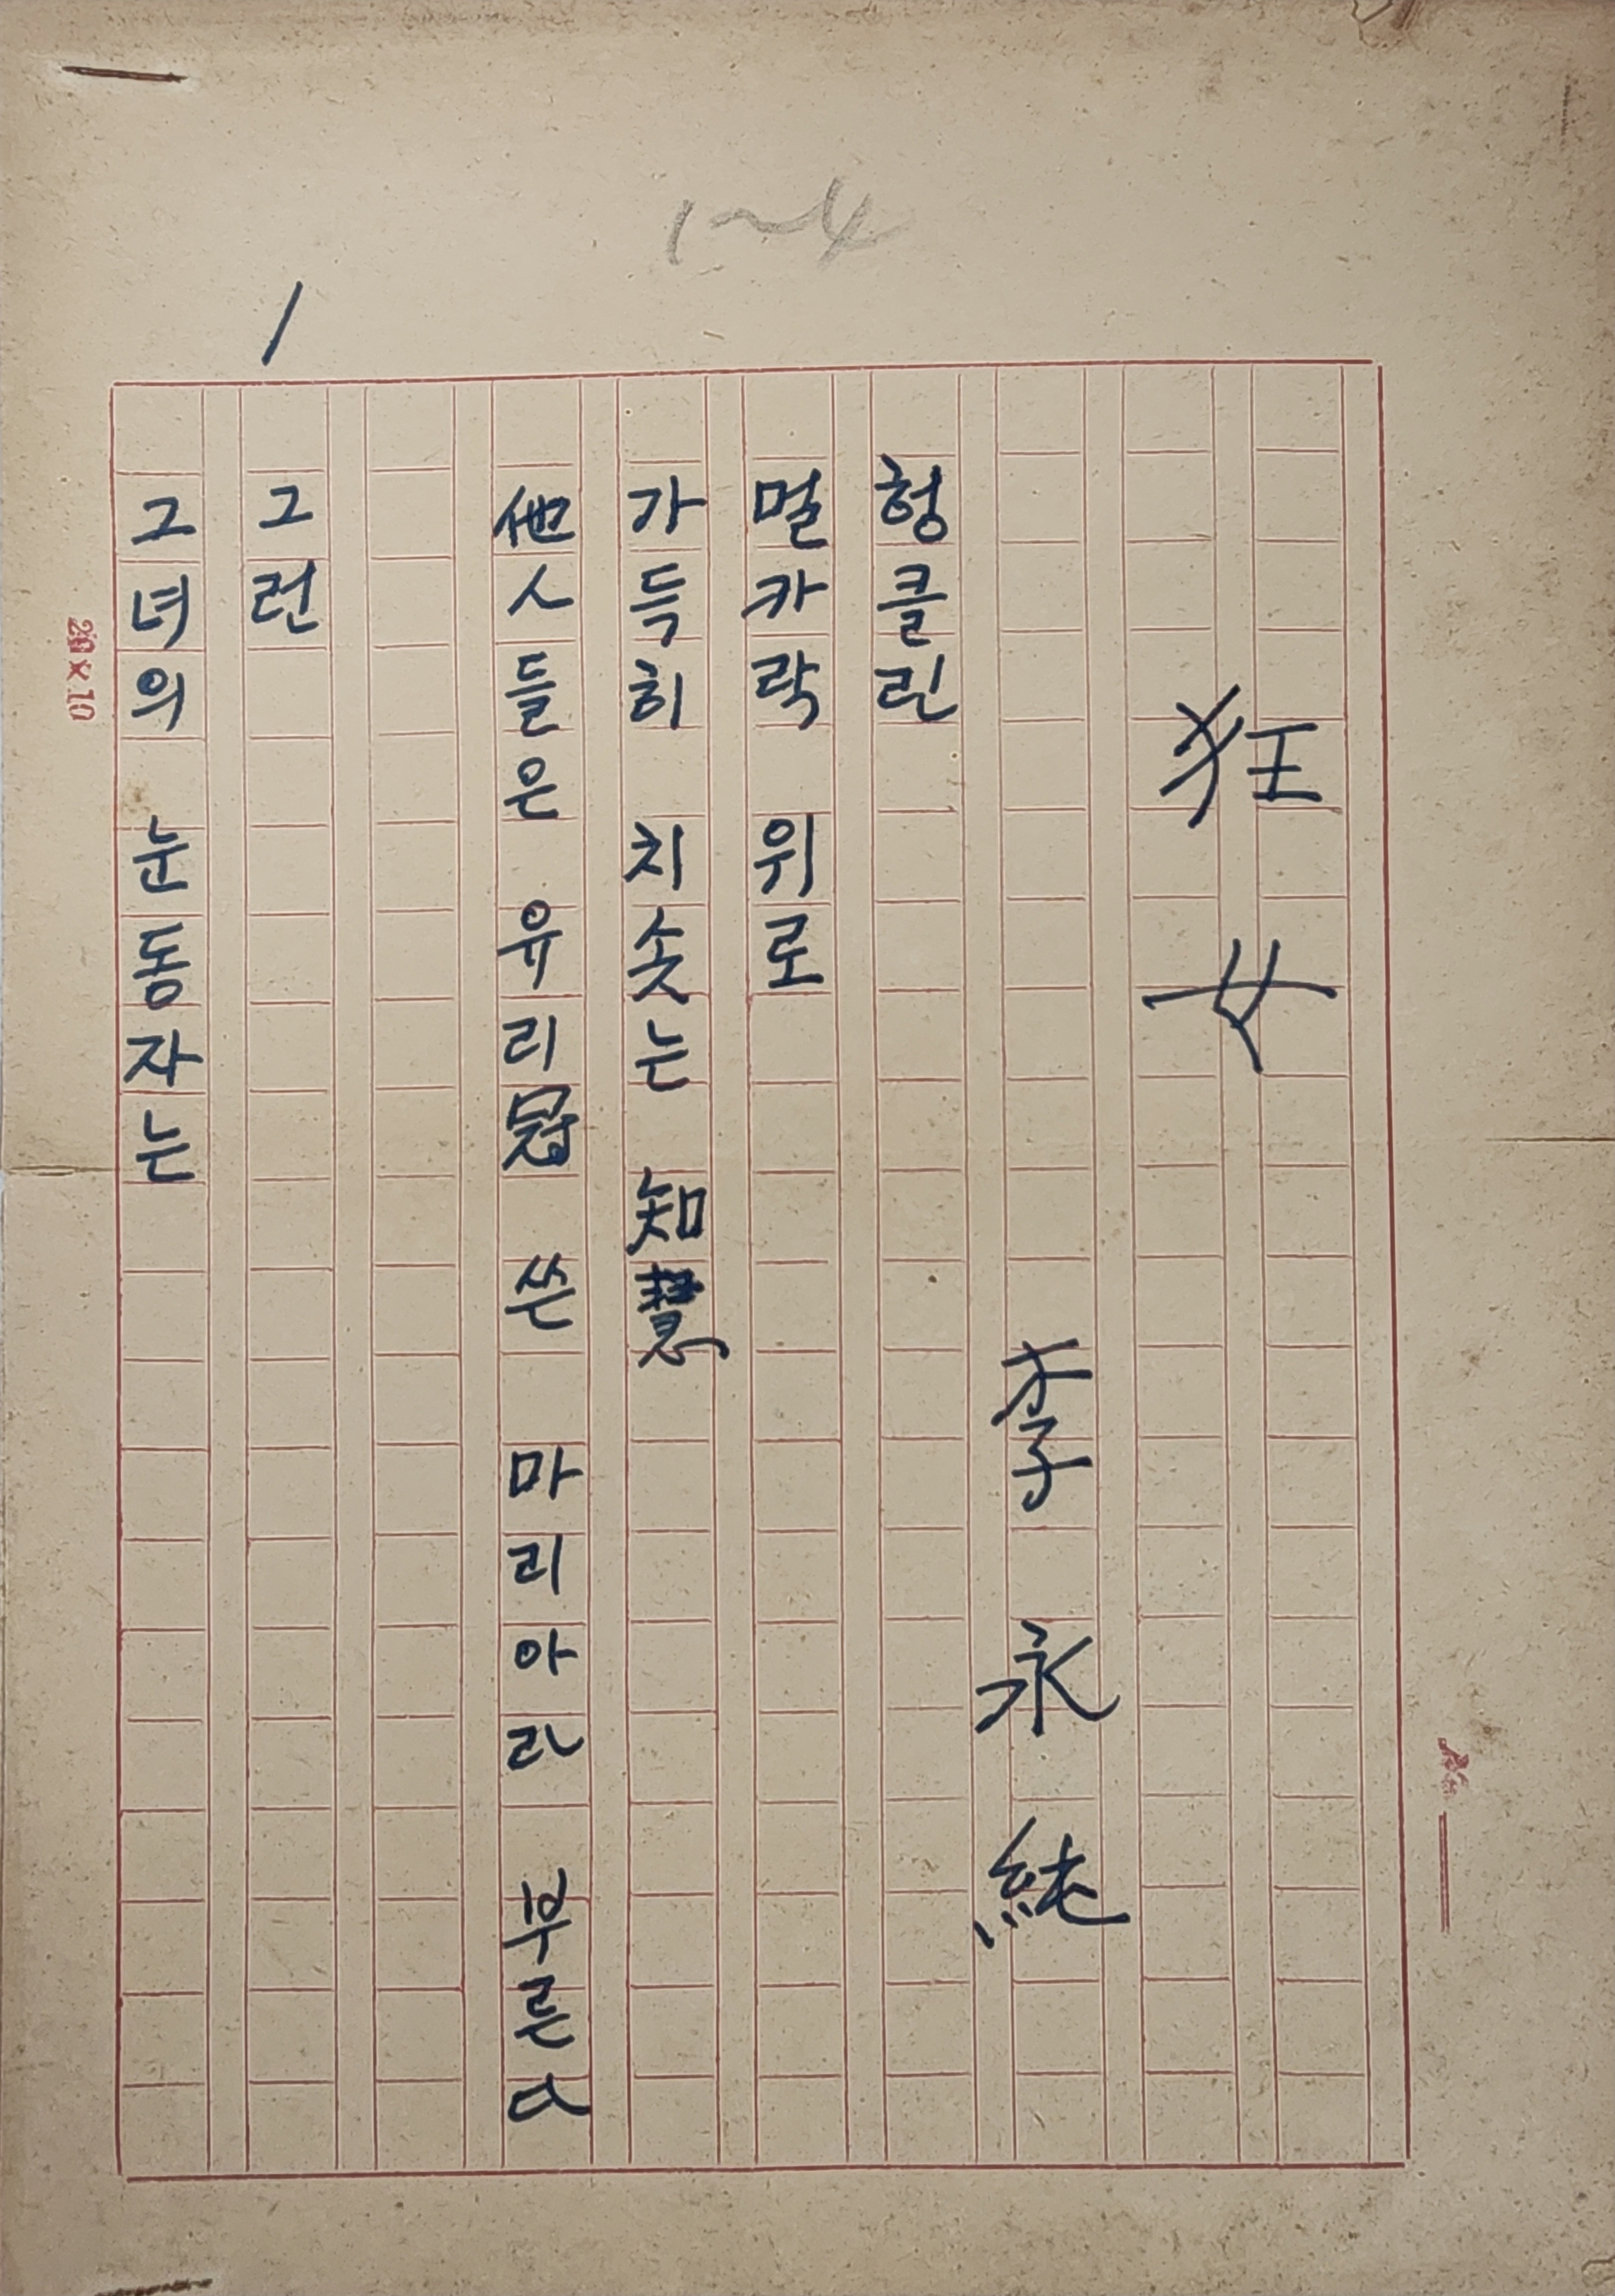 1~4
狂女
李永純
헝클린
멀카락 위로
가득히 치솟는 知慧
他人들은 유리冠 쓴 마리아라 부른다
그런
그녀의 눈동자는
1
20×10